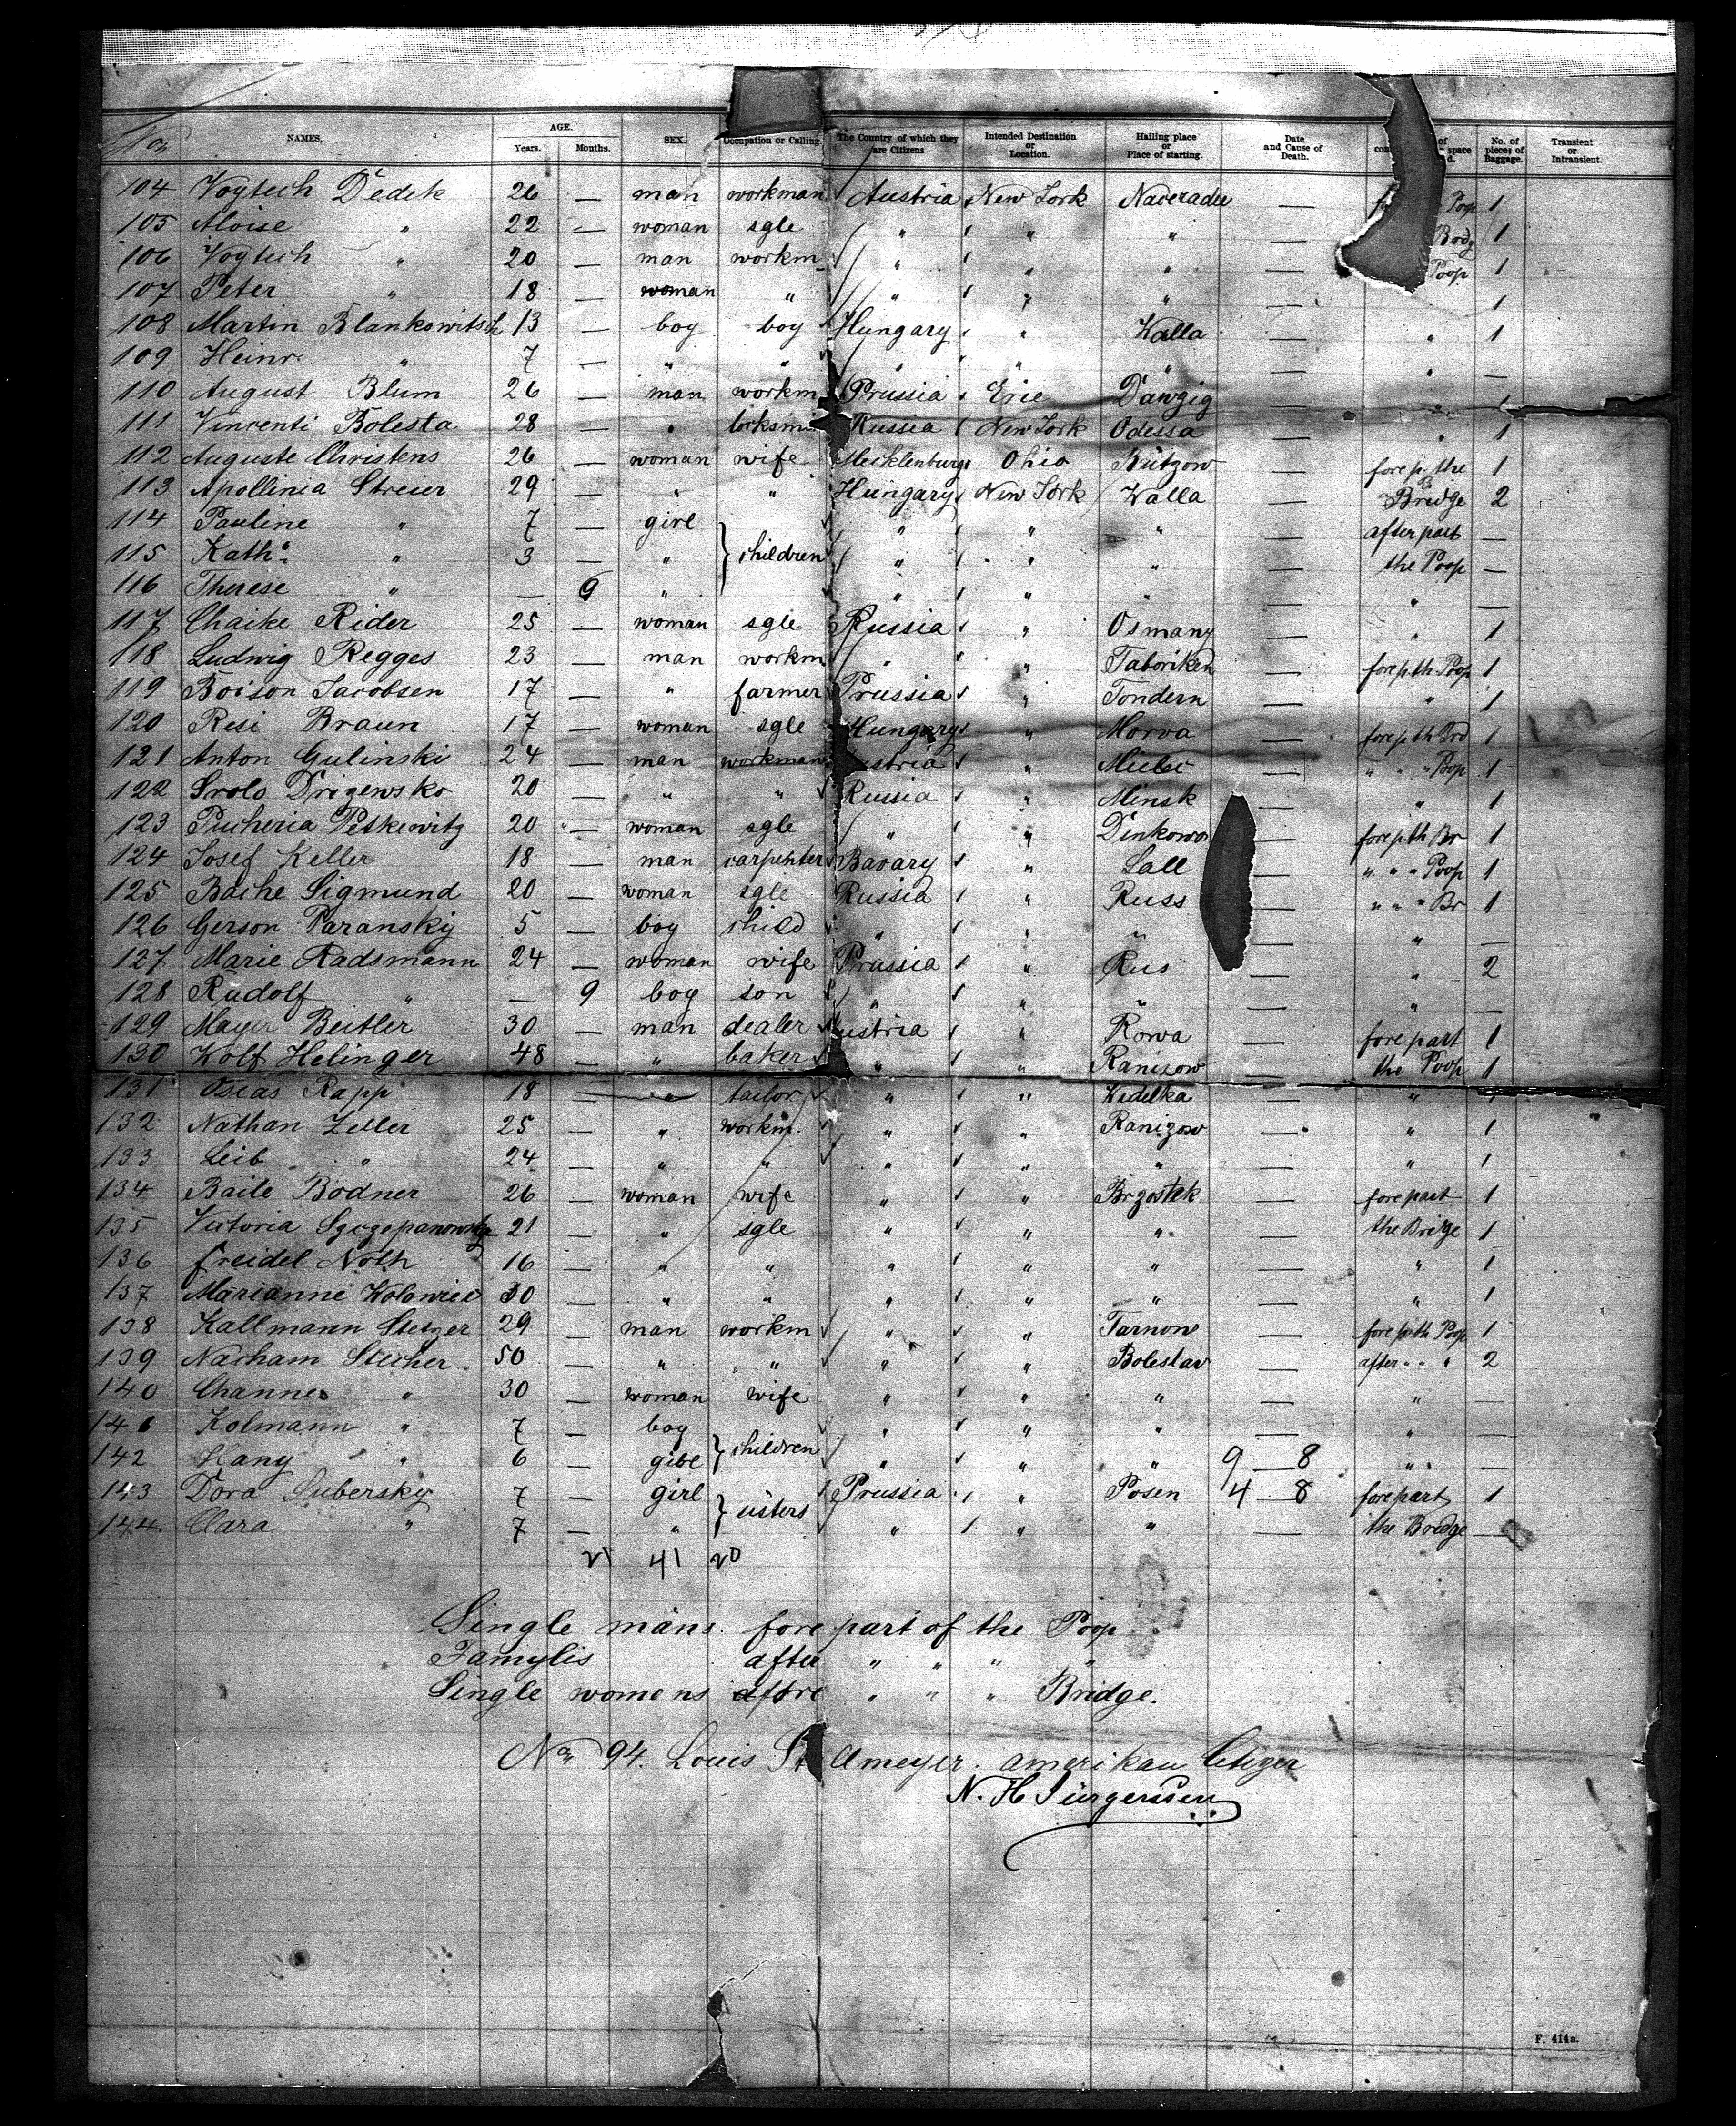 NAMES. AGE. Years. Months. SEX. Occupation or Calling. The Country of which they are Citizens Intended Destination or Location. Hailing place or Place of starting. Date and Cause of Death. of space No. of pieces of Baggage. Transient or Intransient.
104 Voytech Dedek 26 — man workman Austria New York Naceradec — Poop 1
105 Aloise " 22 — woman sgle " " " — Brdg 1
106 Voytech " 20 — man workm " " " — Poop 1
107 Peter " 18 — woman " " " " — 1
108 Martin Blankowitsch 13 — boy boy Hungary " Walla — " 1
109 Heinr. " 7 — " " " " " — " —
110 August Blum 26 — man workm Prussia Erie Danzig — " 1
111 Vincenti Bolesta 28 — " locksmi Russia New York Odessa — " 1
112 Auguste Christens 26 — woman wife Mecklenburg Ohio Bützow — fore p. the 1
113 Apollinia Streier 29 — " " Hungary New York Walla — Bridge 2
114 Pauline " 7 — girl children " " " — after part —
115 Kath. " 3 — " " " " — the Poop —
116 Therese " — 9 " " " " — " —
117 Chaike Rider 25 — woman sgle Russia " Osmany — " 1
118 Ludwig Regges 23 — man workm " " Taboriken — fore p th Poop 1
119 Boison Jacobsen 17 — " farmer Prussia " Tondern — " 1
120 Resi Braun 17 — woman sgle Hungary " Morva — fore p th Brd 1
121 Anton Gulinski 24 — man workman ustria " Mielec — " " " Poop 1
122 Srolo Drizewsko 20 — " " Russia " Minsk — " 1
123 Pucheria Petkewitz 20 — woman sgle " " Dinkowo — fore p th Br 1
124 Josef Keller 18 — man carpenter Bavary " Lall — " " " Poop 1
125 Bache Sigmund 20 — woman sgle Russia " Russ — " " " Br 1
126 Gerson Paransky 5 — boy child " " " — " —
127 Marie Radsmann 24 — woman wife Prussia " Rus — " 2
128 Rudolf " — 9 boy son " " " — " —
129 Mayer Beitler 30 — man dealer ustria " Rowa — fore part 1
130 Wolf Helinger 48 — " baker " " Ranizow — the Poop 1
131 Oscas Rapp 18 — " tailor " " Widelka — "
132 Nathan Zeller 25 — " workm. " " Ranizow — " 1
133 Leib " 24 — " " " " " — " 1
134 Baile Bodner 26 — woman wife " " Brzostek — fore part 1
135 Victoria Szczepanowsky 21 — " sgle " " " — the Bridge 1
136 Freidel Noth 16 — " " " " " — " 1
137 Marianne Kolowiec 30 — " " " " " — " 1
138 Kallmann Stetzer 29 — man workm " " Tarnow — fore p th Poop 1
139 Nacham Stecher 50 — " " " " Boleslav — after " " " 2
140 Channe " 30 — woman wife " " " — " —
141 Kolmann " 7 — boy children " " " — " —
142 Hany " 6 — girl " " " 9 — 8 " —
143 Dora Subersky 7 — girl sisters Prussia " Posen 4 — 8 fore part 1
144. Clara " 7 — " " " " — the Bridge —
21 41 20
Single mans fore part of the Poop
Famylis after " " " "
Single womens afore " " " Bridge.
No 94. Louis St lmeyer. amerikan Citizen
N. H. Jürgerssen
F. 414a.